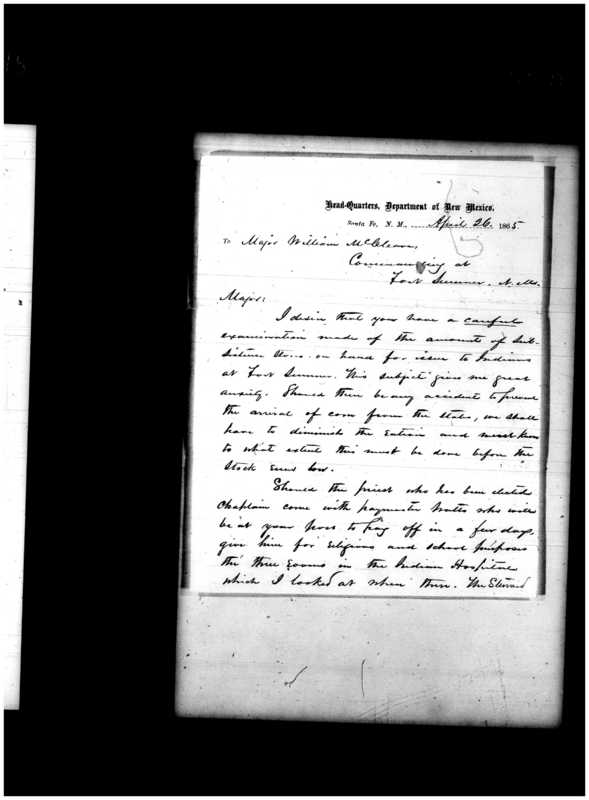 Head-Quarters, Department of New Mexico,
Santa Fe, N. M., April 26, 1865
To Major William McCleave,
Commanding at
Fort Sumner, N. M.
Major:
I desire that you have a careful
examination made of the amount of Sub-
sistence Stores on hand for issue to Indians
at Fort Sumner. This subject gives me great
anxiety. Should there be any accident to prevent
the arrival of corn from the States, we shall
have to diminish the ration and must know
to what extent this must be done before the
stock runs low.
Should the priest who has been elected
Chaplain come with paymaster who will
be at your post to pay off in a few days,
give him for religious and school purposes
the three rooms in the Indian Hospital
which I looked at when there. The Steward